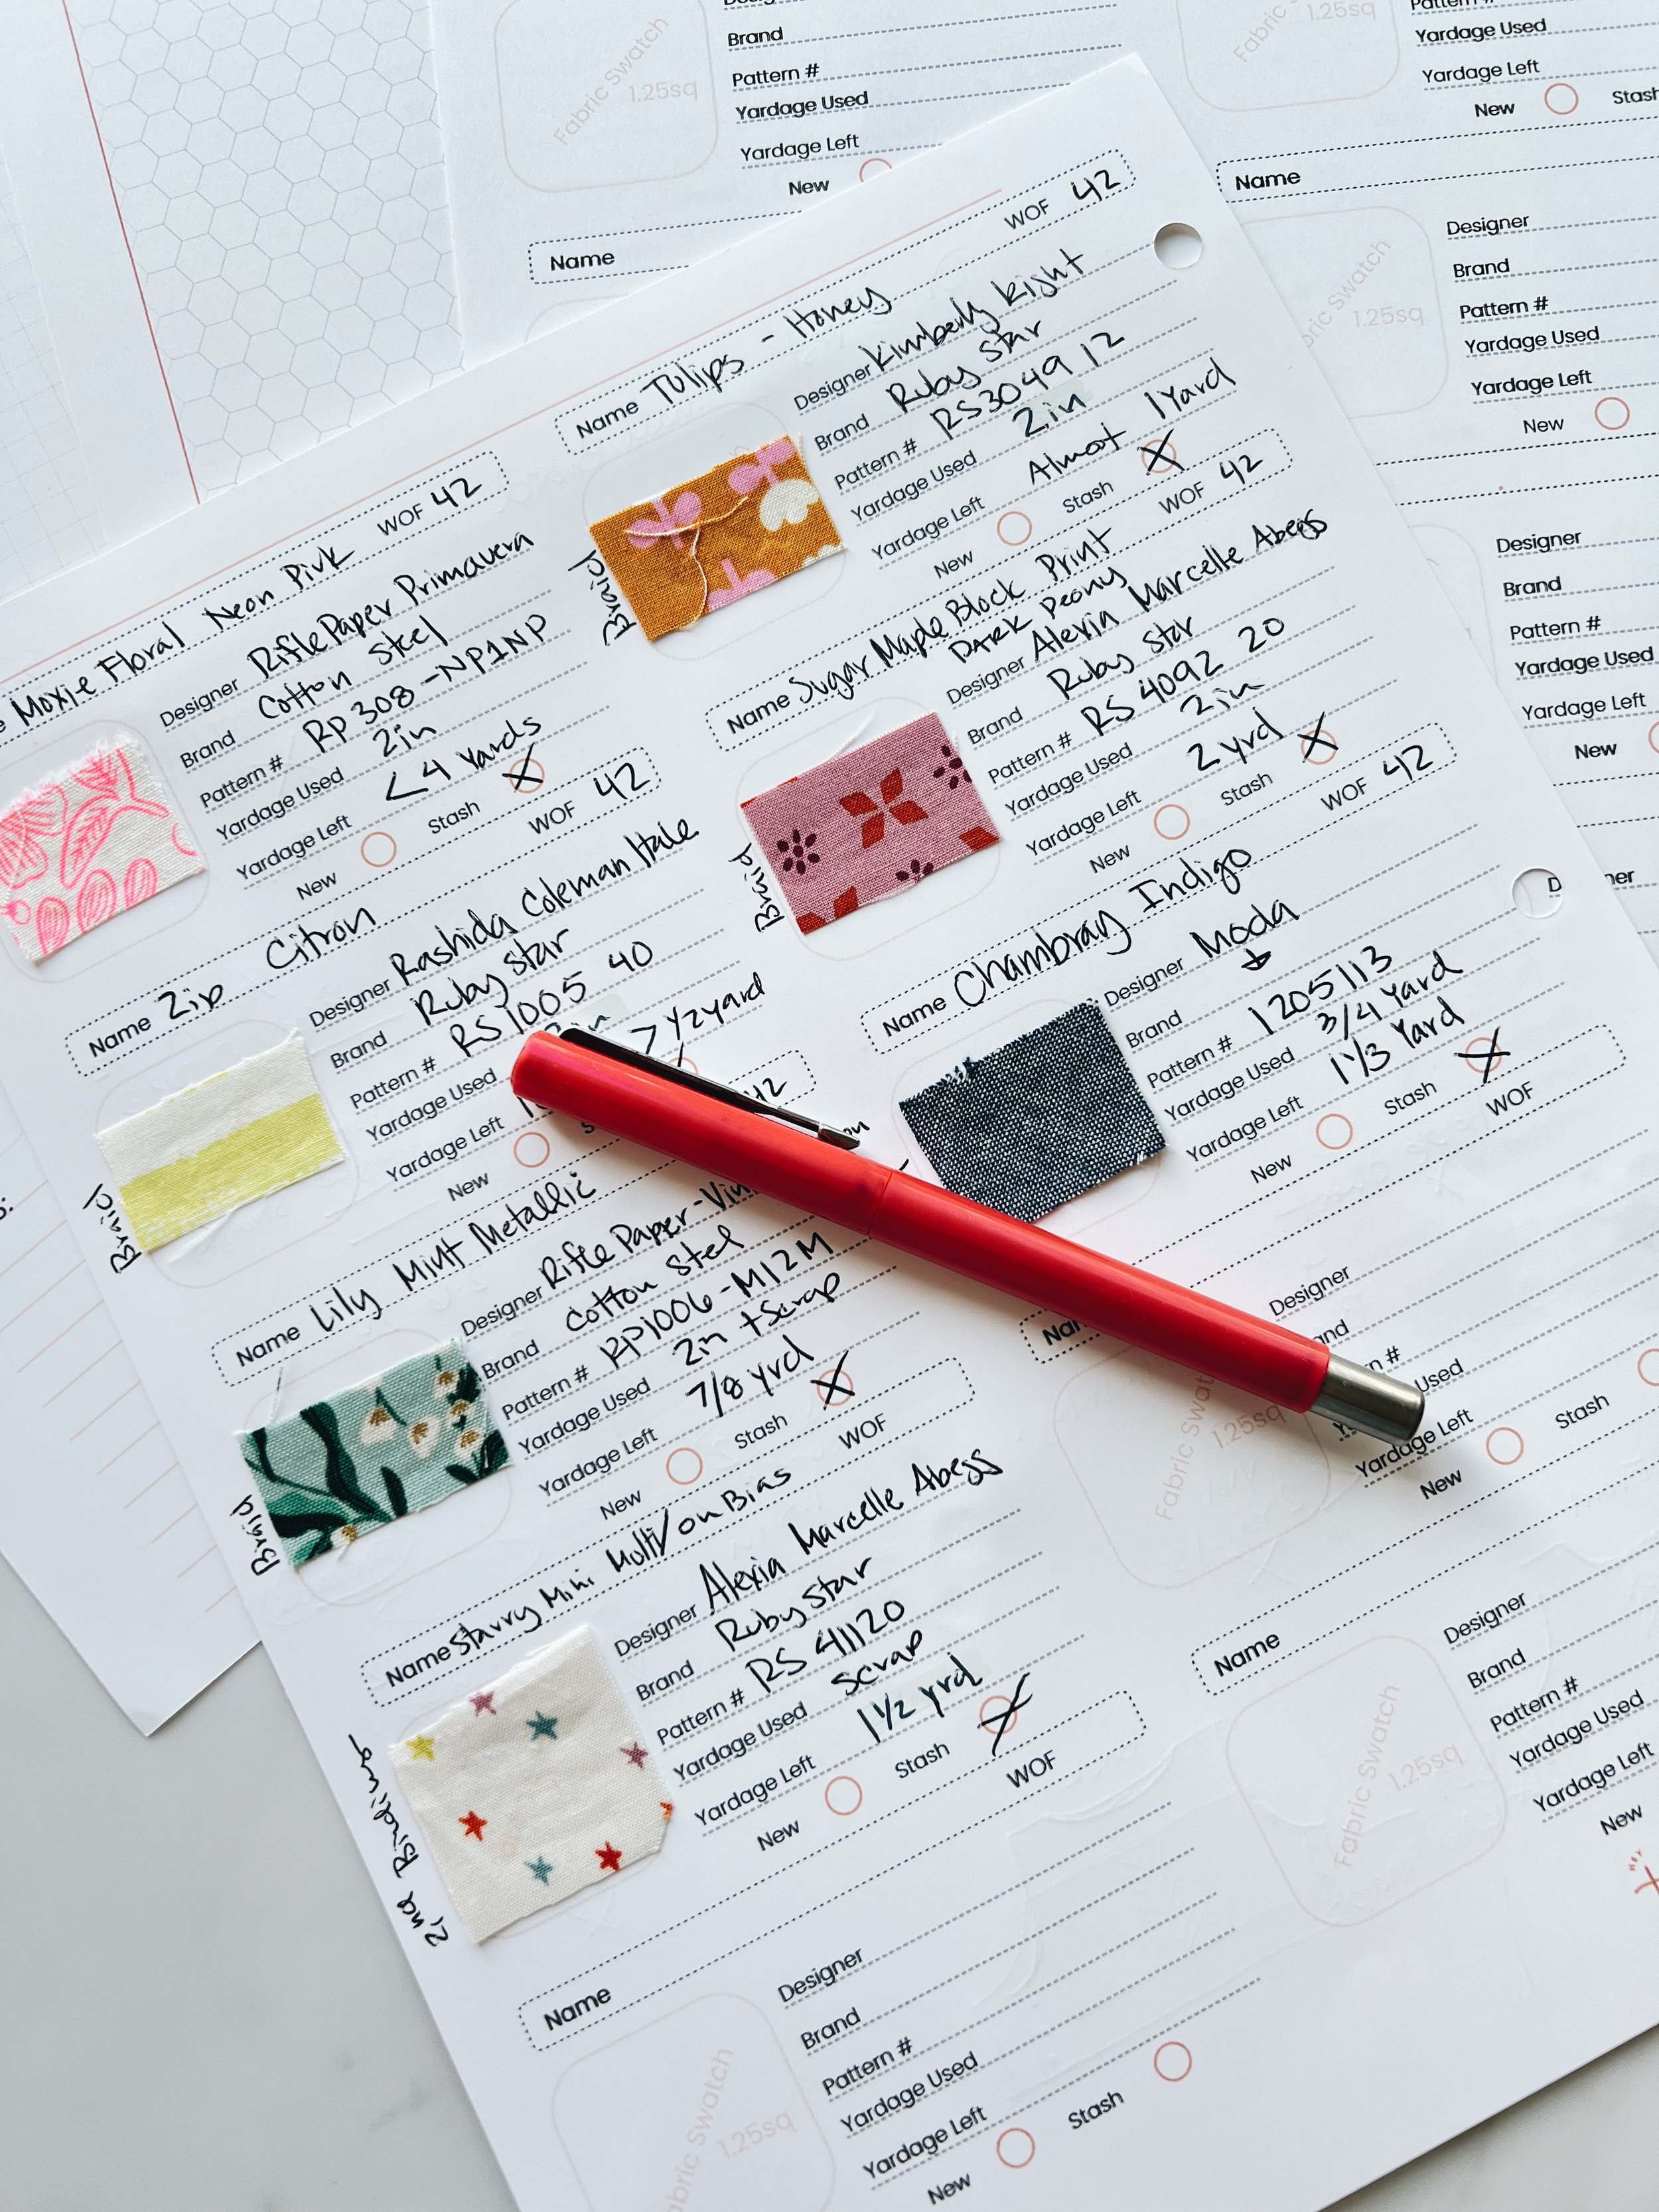 Fabric Swatch
1.25sq
Brand
Pattern #
Yardage Used
Yardage Left
New
Name
Fabric
1.25sq
Yardage Used
Yardage Left
New
Stash
Name
Designer
Brand
Pattern #
Yardage Used
Yardage Left
New
Swatch
1.25sq
Designer
Brand
Pattern #
Yardage Used
Yardage Left
New
Moxie Floral Neon Pink WOF 42
Designer Rifle Paper Primavera
Brand Cotton Steel
Pattern # RP308-NP1NP
Yardage Used 2in
Yardage Left < 4 Yards
New Stash X
Name Zip Citron WOF 42
Braid
Designer Rashida Coleman Hale
Brand Ruby Star
Pattern # RS1005 40
Yardage Used 2in
Yardage Left > 1/2 yard
New
Name Lily Mint Metallic 42
Braid
Designer Rifle Paper -
Brand Cotton Steel
Pattern # RP1006-M12M
Yardage Used 2in + Scrap
Yardage Left 7/8 yrd
New Stash X
Name Starry Mini Multi/on Bias WOF
Binding
Designer Alexia Marcelle Abegg
Brand Ruby Star
Pattern # RS 41120
Yardage Used Scrap
Yardage Left 1 1/2 yrd
New Stash X
Name WOF
Fabric Swatch
1.25sq
Designer
Brand
Pattern #
Yardage Used
Yardage Left
New Stash
Name Tulips - Honey WOF 42
Braid
Designer Kimberly Kight
Brand Ruby Star
Pattern # RS3049 12
Yardage Used 2in
Yardage Left Almost 1 Yard
New Stash X
Name Sugar Maple Block Print WOF 42
DARK Peony
Braid
Designer Alexia Marcelle Abegg
Brand Ruby Star
Pattern # RS 4092 20
Yardage Used 2in
Yardage Left 2 yrd
New Stash X
Name Chambray Indigo WOF 42
Designer Moda
Brand ↓
Pattern # 1205113
Yardage Used 3/4 Yard
Yardage Left 1 1/3 Yard
New Stash X
WOF
Fabric
1.25sq
Designer
Used
Yardage Left
New Stash
Name
Fabric Swatch
1.25sq
Designer
Brand
Pattern #
Yardage Used
Yardage Left
New